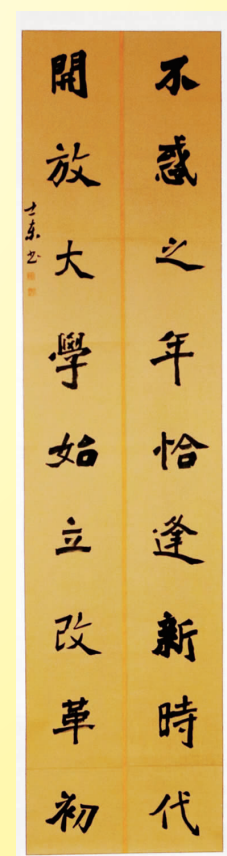 不惑之年恰逢新時代
開放大學始立改革初
士東书